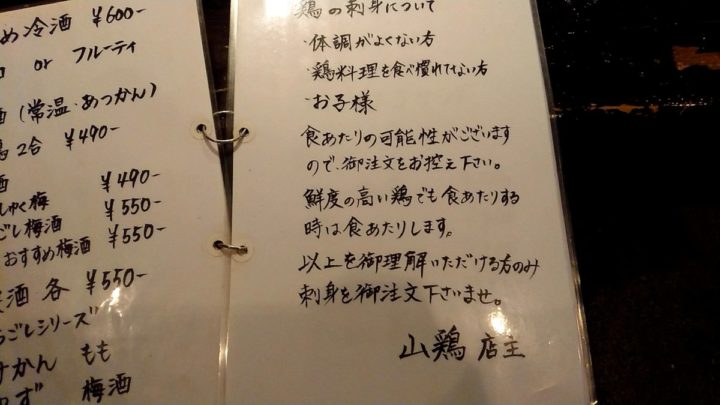 め冷酒 ¥600-
or フルーティ
酒(常温・あつかん)
2合 ¥490-
酒 ¥490-
しゅく梅 ¥550-
ごし梅酒 ¥550-
おすすめ梅酒
酒 各 ¥550-
ごしシリーズ
かん もも
ず 梅酒
鶏の刺身について
・体調がよくない方
・鶏料理を食べ慣れてない方
・お子様
食あたりの可能性がございます
ので、御注文をお控え下さい。
鮮度の高い鶏でも食あたりする
時は食あたりします。
以上を御理解いただける方のみ
刺身を御注文下さいませ。
山鶏 店主